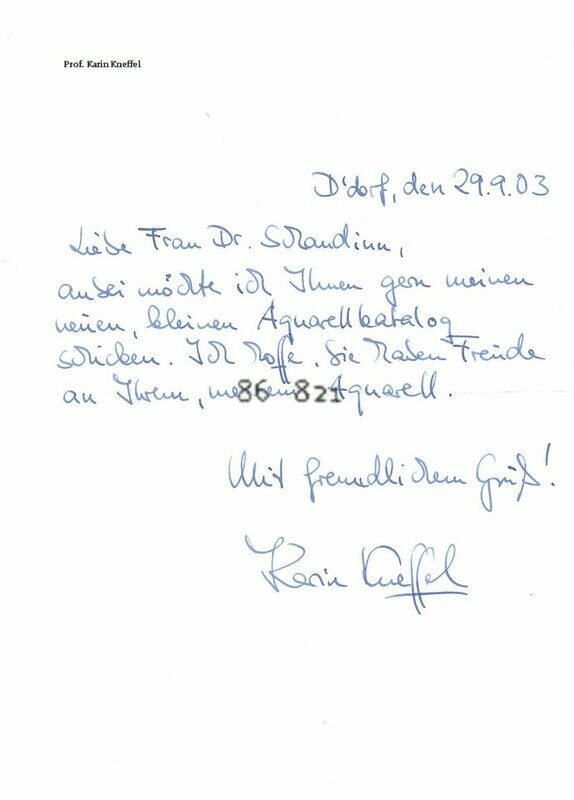 Prof. Karin Kneffel
D'dorf, den 29.9.03
Liebe Frau Dr. Schandinn,
anbei möchte ich Ihnen gern meinen
neuen, kleinen Aquarellkatalog
schicken. Ich hoffe, Sie haben Freude
an Ihrem, 86 821 Aquarell.
Mit freundlichem Gruß!
Karin Kneffel